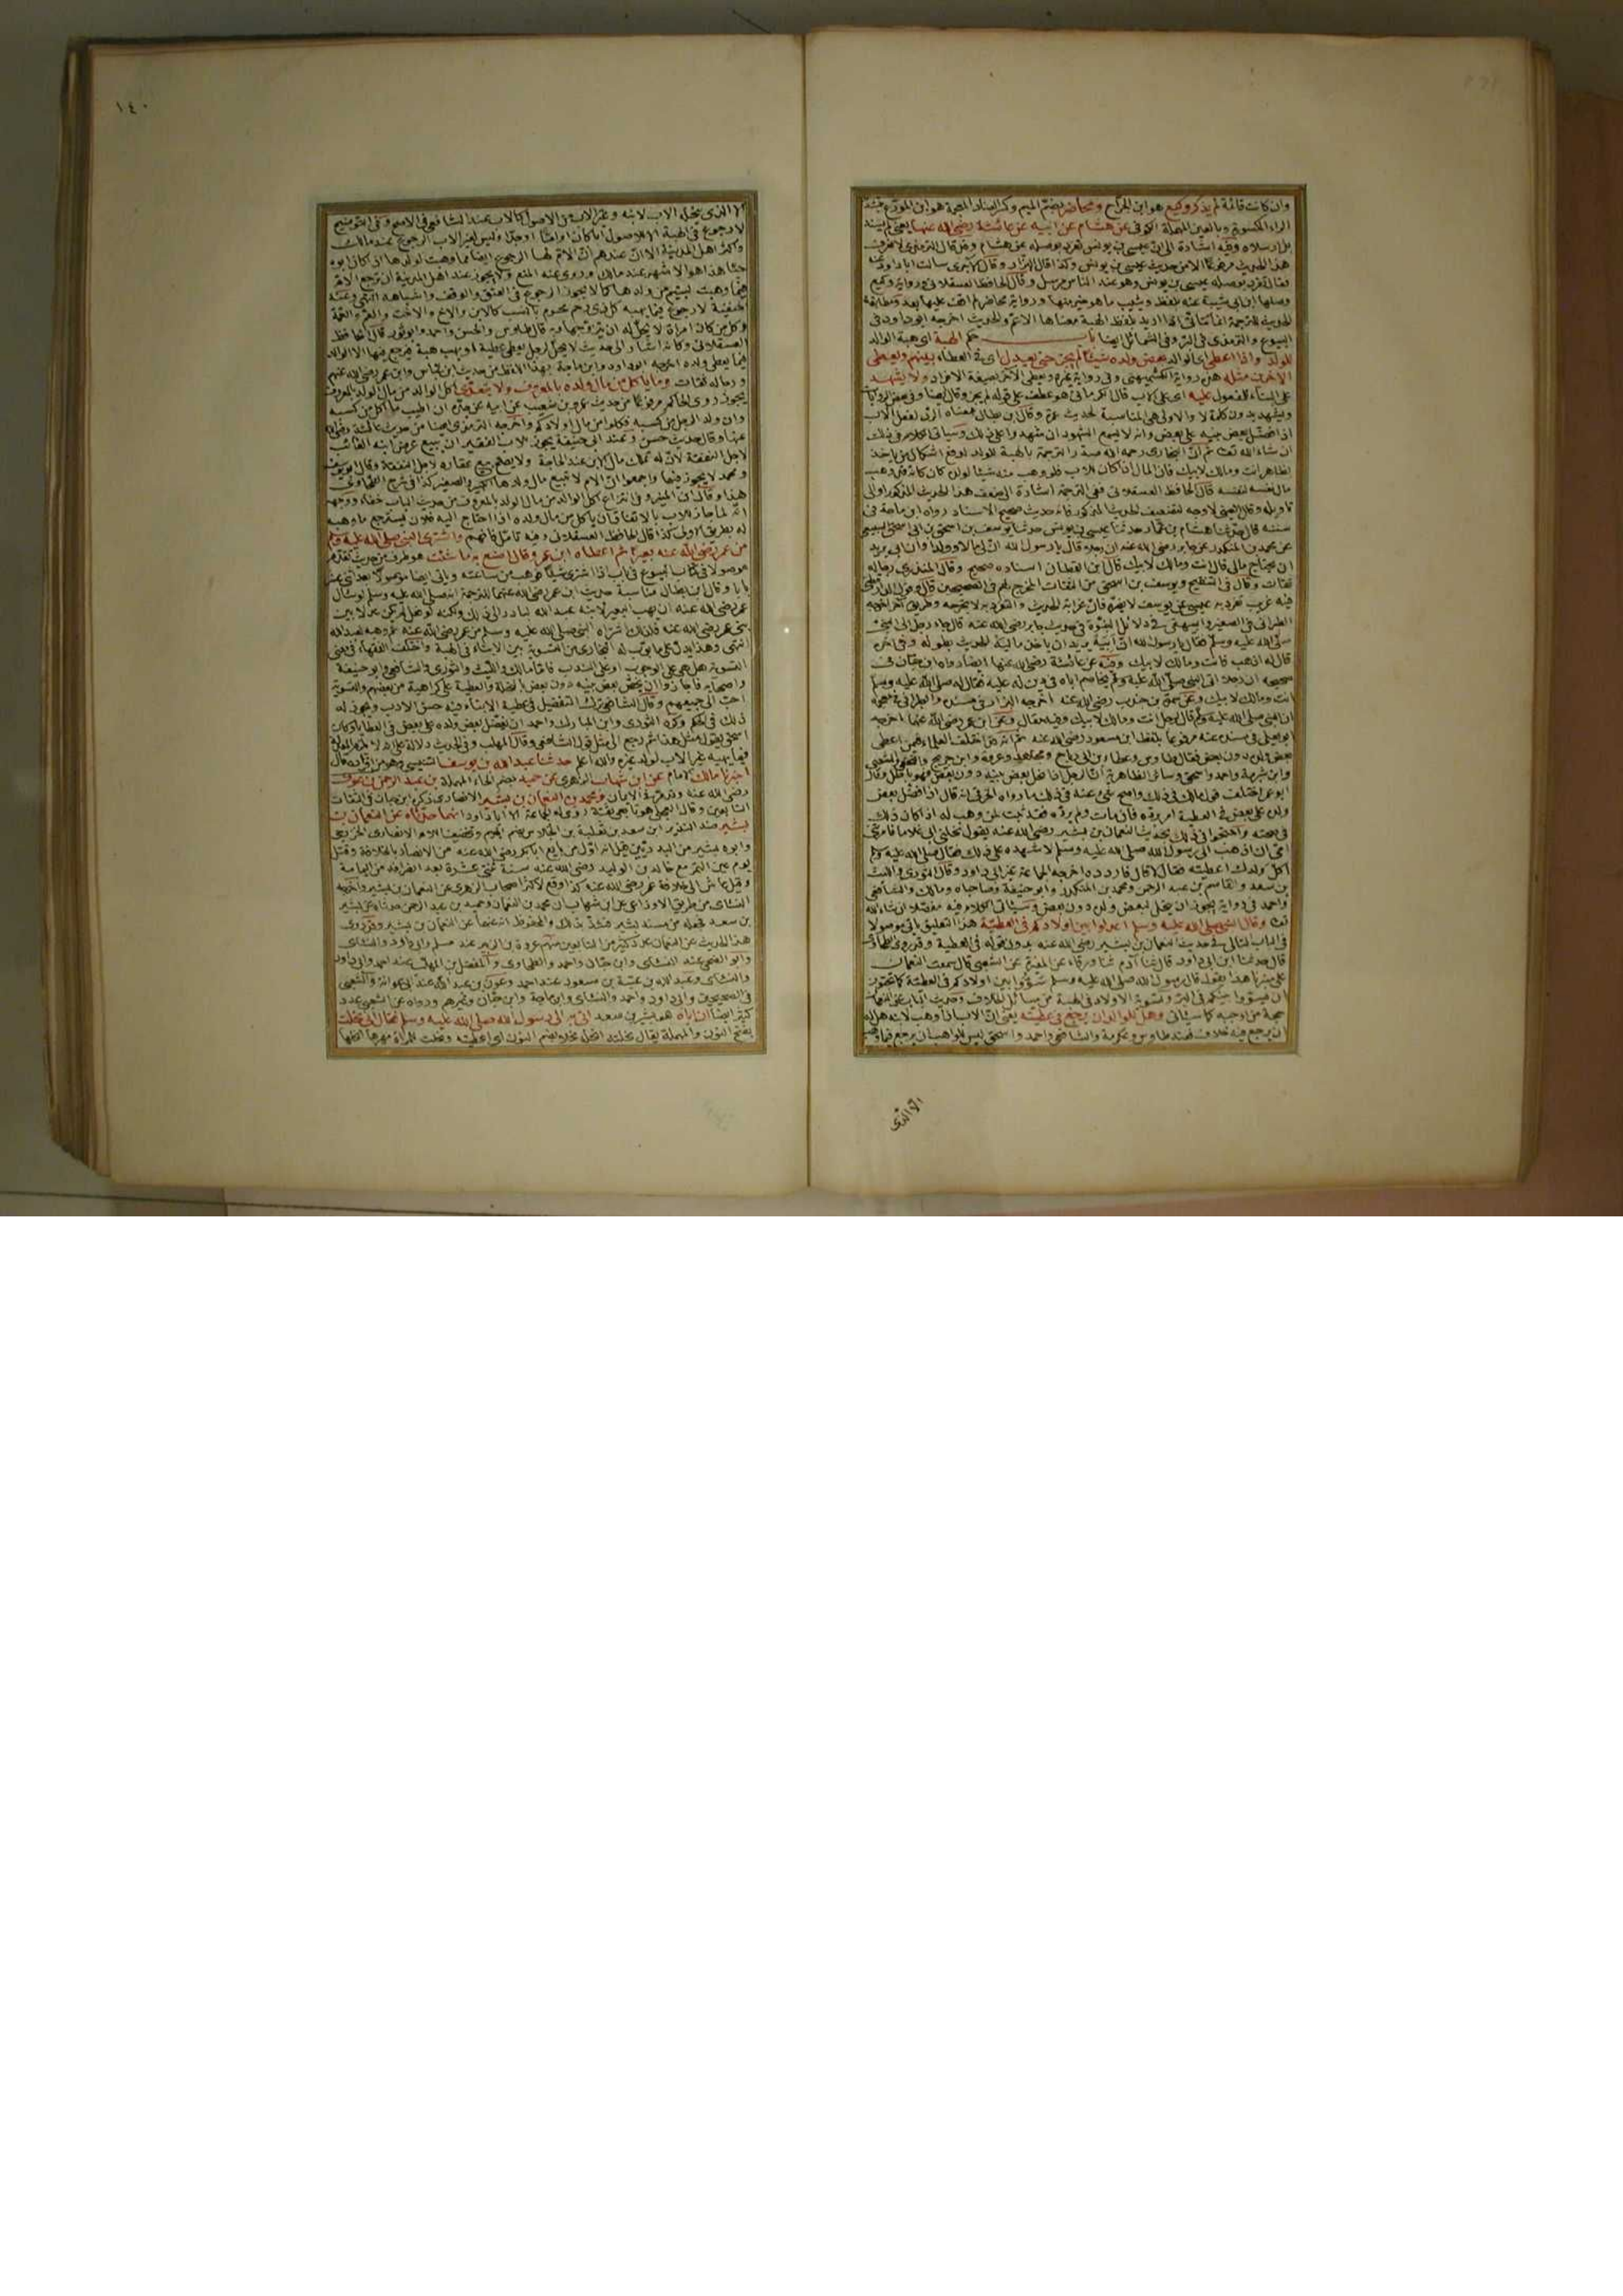 وان كانت قائمة لم يذكر وكيع هو ابن الجراح ومحاضر بضم الميم وكسر الضاد المعجمة هو ابن المورع
الراء المكسورة وبالعين المهملة الكوفي عن هشام عن ابيه عن عائشة رضي الله عنها يعني لم يسند
بل ارسلاه وفيه اشارة الى ان عيسى بن يونس تفرد بوصله عن هشام وقال الترمذي لا نعرف
هذا الحديث مرفوعا الا من حديث عيسى بن يونس وكذا قال البزار وقال الآجري سالت ابا داود عنه
فقال تفرد بوصله عيسى بن يونس وهو عند الناس مرسل وقال الحافظ العسقلاني ورواية وكيع
وصلها ابن ابي شيبة عنه بلفظ ويثيب ما هو خير منها ورواية محاضر لم اقف عليها بعد ومطابقة
الحديث للترجمة انما تتأتى اذا اريد بلفظ الهبة معناها الاعم والحديث اخرجه ابو داود في
البيوع والترمذي في البر وفي الشمائل ايضا باب حكم الهبة اي هبة الوالد
للولد واذا اعطى اي الوالد بعض ولده شيئا لم يجز حتى يعدل اي في العطاء بينهم ويعطي
الآخرين مثله هذه رواية الكشميهني وفي رواية غيره ويعطى الآخر بصيغة الافراد ولا يشهد
على البناء للمفعول عليه اي على الاب قال الكرماني هو عطف على قوله لم يجز
اذا فضل بعض بنيه على بعض وانه لا يسع الشهود ان يشهدوا على ذلك وسياتي الكلام في ذلك
ان شاء الله تعالى ثم ان البخاري رحمه الله صدر الترجمة بالهبة للولد لدفع اشكال من ياخذ
بظاهر انت ومالك لابيك فان المال اذا كان للاب فلو وهب منه شيئا لولده كان كانه وهب
مال نفسه لنفسه قال الحافظ العسقلاني ففي الترجمة اشارة الى ضعف هذا الحديث المذكور او الى
تاويله وقال العيني لا وجه لتضعيف الحديث المذكور فانه حديث صحيح الاسناد رواه ابن ماجة في
سننه قال حدثنا هشام بن عمار حدثنا عيسى بن يونس حدثنا يوسف بن اسحق بن ابي اسحق السبيعي
عن محمد بن المنكدر عن جابر رضي الله عنه ان رجلا قال يا رسول الله ان لي مالا وولدا وان ابي يريد
ان يجتاح مالي قال انت ومالك لابيك قال ابن القطان اسناده صحيح وقال المنذري رجاله
ثقات وقال في التنقيح ويوسف بن اسحق من الثقات المخرج لهم في الصحيحين قال وقول الدارقطني
فيه غريب تفرد به عيسى عن يوسف لا يضره فان غرابة الحديث والتفرد به لا يخرجه وطريق آخر اخرجه
الطبراني في الصغير والبيهقي في دلائل النبوة في حديث جابر رضي الله عنه قال جاء رجل الى النبي
صلى الله عليه وسلم فقال يا رسول الله ان ابيه يريد ان ياخذ ماليه الحديث بطوله وفي آخره
قال له اذهب فانت ومالك لابيك وفيه عن عائشة رضي الله عنها ايضا رواه ابن حبان في
صحيحه ان رجلا اتى النبي صلى الله عليه وسلم يخاصم اباه في دين له عليه فقال له صلى الله عليه وسلم
انت ومالك لابيك وعن سمرة بن جندب رضي الله عنه اخرجه البزار في مسنده والطبراني في معجمه
ان النبي صلى الله عليه وسلم قال لرجل انت ومالك لابيك وفيه مقال وعن ابن عمر رضي الله عنهما اخرجه
ابو يعلى في مسنده عنه مرفوعا بلفظ ابن مسعود رضي الله عنه ثم انه قد اختلف العلماء فيمن اعطى
بعض ولده دون بعض فقال طاوس وعطاء بن ابي رباح ومجاهد وعروة وابن جريج والنخعي والشعبي
وابن شبرمة واحمد واسحق وسائر الظاهرية ان الرجل اذا نحل بعض بنيه دون بعض فهو باطل وقال
ابو عمر اختلف قول مالك في ذلك واصح شيء عنه في ذلك ما رواه الخرقي انه قال اذا فضل بعض
ولده على بعض في العطية امر برده فان مات ولم يرده فقد ثبت لمن وهب له اذا كان ذلك
في صحته واحتجوا في ذلك بحديث النعمان بن بشير رضي الله عنه يقول نحلني ابي غلاما فامرتني
امي ان اذهب الى رسول الله صلى الله عليه وسلم لاشهده على ذلك فقال صلى الله عليه وسلم
اكل ولدك اعطيته فقال لا قال فاردده اخرجه الجماعة غير ابي داود وقال الثوري والليث
بن سعد والقاسم بن عبد الرحمن ومحمد بن المنكدر وابو حنيفة وصاحباه ومالك والشافعي
واحمد في رواية يجوز ان ينحل لبعض ولده دون بعض وسياتي الكلام فيه مفصلا ان شاء الله
تعالى وقال النبي صلى الله عليه وسلم اعدلوا بين اولادكم في العطية هذا التعليق ياتي موصولا
في الباب التالي في حديث النعمان بن بشير رضي الله عنه بدون قوله في العطية وقد روى الطحاوي
قال حدثنا ابن ابي داود قال ثنا آدم ثنا ورقاء عن المغيرة عن الشعبي قال سمعت النعمان
على منبرنا هذا يقول قال رسول الله صلى الله عليه وسلم سووا بين اولادكم في العطية كما تحبون
ان يسووا بينكم في البر وتسوية الاولاد في الهبة من مسائل الخلاف وحديث الباب عن النعمان
حجة من اوجبه كما سياتي وهل للوالد ان يرجع في عطيته يعني ان الاب اذا وهب لابنه هل له
ان يرجع فيه خلاف فعند طاوس وعكرمة والشافعي واحمد واسحق ليس للواهب ان يرجع فيما وهب
الا الذي
١٤٠
الا الذي ينحله الاب لابنه وغير الاب من الاصول كالاب عند الشافعي في الاصح وفي التوضيح
لا رجوع في الهبة الا للاصول ابا كان او اما او جدا وليس لغير الاب الرجوع عند مالك
واكثر اهل المدينة الا ان عندهم ان الام لها الرجوع ايضا مما وهبت لولدها اذا كان ابوه
حيا هذا هو الاشهر عند مالك وروي عنه المنع ولا يجوز عند اهل المدينة ان ترجع الام
فيما وهبت ليتيم من ولدها كما لا يجوز الرجوع في العتق والوقف واشباهه انتهى وعند
الحنفية لا رجوع فيما يهبه لكل ذي رحم محرم بالنسب كالابن والاخ والاخت والعم والعمة
وكل من كان امراة لا يحل له ان يتزوجها وبه قال طاوس والحسن واحمد وابو ثور قال الحافظ
العسقلاني وكانه اشار الى حديث لا يحل لرجل يعطي عطية او يهب هبة فيرجع فيها الا الوالد
فيما يعطي ولده اخرجه ابو داود وابن ماجة بهذا اللفظ من حديث ابن عباس وابن عمر رضي الله عنهم
ورجاله ثقات وما ياكل من مال ولده بالمعروف ولا يتعدى اكل الوالد من مال الولد بالمعروف
يجوز روى الحاكم مرفوعا من حديث عمرو بن شعيب عن ابيه عن جده ان اطيب ما اكل من كسبه
وان ولد الرجل من كسبه فكلوا من مال اولادكم واخرجه الترمذي ايضا من حديث عائشة رضي الله
عنها وقال حديث حسن وعند ابي حنيفة يجوز للاب الفقير ان يبيع عرض ابنه الغائب
لاجل النفقة لان له تملك مال الابن عند الحاجة ولا يصح بيع عقاره لاجل النفقة وقال ابو يوسف
ومحمد لا يجوز فيهما واجمعوا ان الام لا تبيع مال ولدها الكبير والصغير كذا في شرح الطحاوي
هذا وقال ابن المنير وفي انتزاع اكل الوالد من مال الولد بالمعروف من حديث الباب خفاء ووجهه
انه لما جاز للاب بالاتفاق ان ياكل من مال ولده اذا احتاج اليه فلان يسترجع ما وهبه
له بطريق الاولى كذا قال الحافظ العسقلاني وفيه تامل فافهم واشترى النبي صلى الله عليه وسلم
من عمر رضي الله عنه بعيرا ثم اعطاه ابن عمر وقال اصنع به ما شئت هو طرف من حديث تقدم
موصولا في كتاب البيوع في باب اذا اشترى شيئا فوهب من ساعته وياتي ايضا موصولا بعد اثني عشر
بابا وقال ابن بطال مناسبة حديث ابن عمر رضي الله عنهما للترجمة انه صلى الله عليه وسلم لو سال
عمر رضي الله عنه ان يهب البعير لابنه عبد الله لبادر الى ذلك ولكنه لو فعل لم يكن عدلا بين
بني عمر رضي الله عنه فلذلك اشتراه النبي صلى الله عليه وسلم من عمر رضي الله عنه ثم وهبه لعبد الله
انتهى وهذا يدل على ما بوب له البخاري من التسوية بين الابناء في الهبة واختلف الفقهاء في معنى
التسوية هل هي على الوجوب او على الندب فاما مالك والليث والثوري والشافعي وابو حنيفة
واصحابه فاجازوا ان يخص بعض بنيه دون بعض بالنحلة والعطية على كراهية من بعضهم والتسوية
احب الى جميعهم وقال الشافعي ترك التفضيل في عطية الابناء فيه حسن الادب ويجوز له
ذلك في الحكم وكره الثوري وابن المبارك واحمد ان يفضل بعض ولده على بعض في العطايا وكان
اسحق يقول مثل هذا ثم رجع الى مثل قول الشافعي وقال المهلب وفي الحديث دلالة على انه لا تلزم المعدلة
فيما يهبه غير الاب لولد غيره والله اعلم حدثنا عبد الله بن يوسف التنيسي وهو من افراده قال
اخبرنا مالك الامام عن ابن شهاب الزهري عن حميد بضم الحاء المهملة بن عبد الرحمن بن عوف
رضي الله عنه وقد مر في الايمان ومحمد بن النعمان بن بشير الانصاري ذكره ابن حبان في الثقات
التابعين وقال العجلي هو تابعي ثقة روى له الجماعة الا ابا داود انهما حدثاه عن النعمان بن
بشير ضد النذير ابن سعد بن ثعلبة بن الجلاس بضم الجيم وتخفيف اللام الانصاري الخزرجي
وابوه بشير من البدريين قيل انه اول من بايع ابا بكر رضي الله عنه من الانصار بالخلافة وقتل
يوم عين التمر مع خالد بن الوليد رضي الله عنه سنة ثنتي عشرة بعد انصرافه من اليمامة
وقيل عاش الى خلافة عمر رضي الله عنه كذا وقع لاكثر اصحاب الزهري عن النعمان بن بشير واخرجه
النسائي من طريق الاوزاعي عن ابن شهاب ان محمد بن النعمان وحميد بن عبد الرحمن حدثاه عن بشير
بن سعد فجعله من مسند بشير فشذ بذلك والمحفوظ انه عنهما عن النعمان بن بشير وقد روى
هذا الحديث عن النعمان عدد كثير من التابعين منهم عروة بن الزبير عند مسلم وابي داود والنسائي
وابو الضحى عند النسائي وابن حبان واحمد والطحاوي والمفضل بن المهلب عند احمد وابي داود
والنسائي وعبد الله بن عتبة بن مسعود عند احمد وعون بن عبد الله عند ابي عوانة والشعبي
في الصحيحين وابي داود واحمد والنسائي وابن ماجة وابن حبان وغيرهم ورواه عن الشعبي عدد
كثير ايضا ان اباه هو بشير بن سعد اتى به الى رسول الله صلى الله عليه وسلم فقال اني نحلت
بفتح النون والمهملة يقال نحلته انحله نحلا بضم النون اي اعطيته ونحلت المراة مهرها انحلها